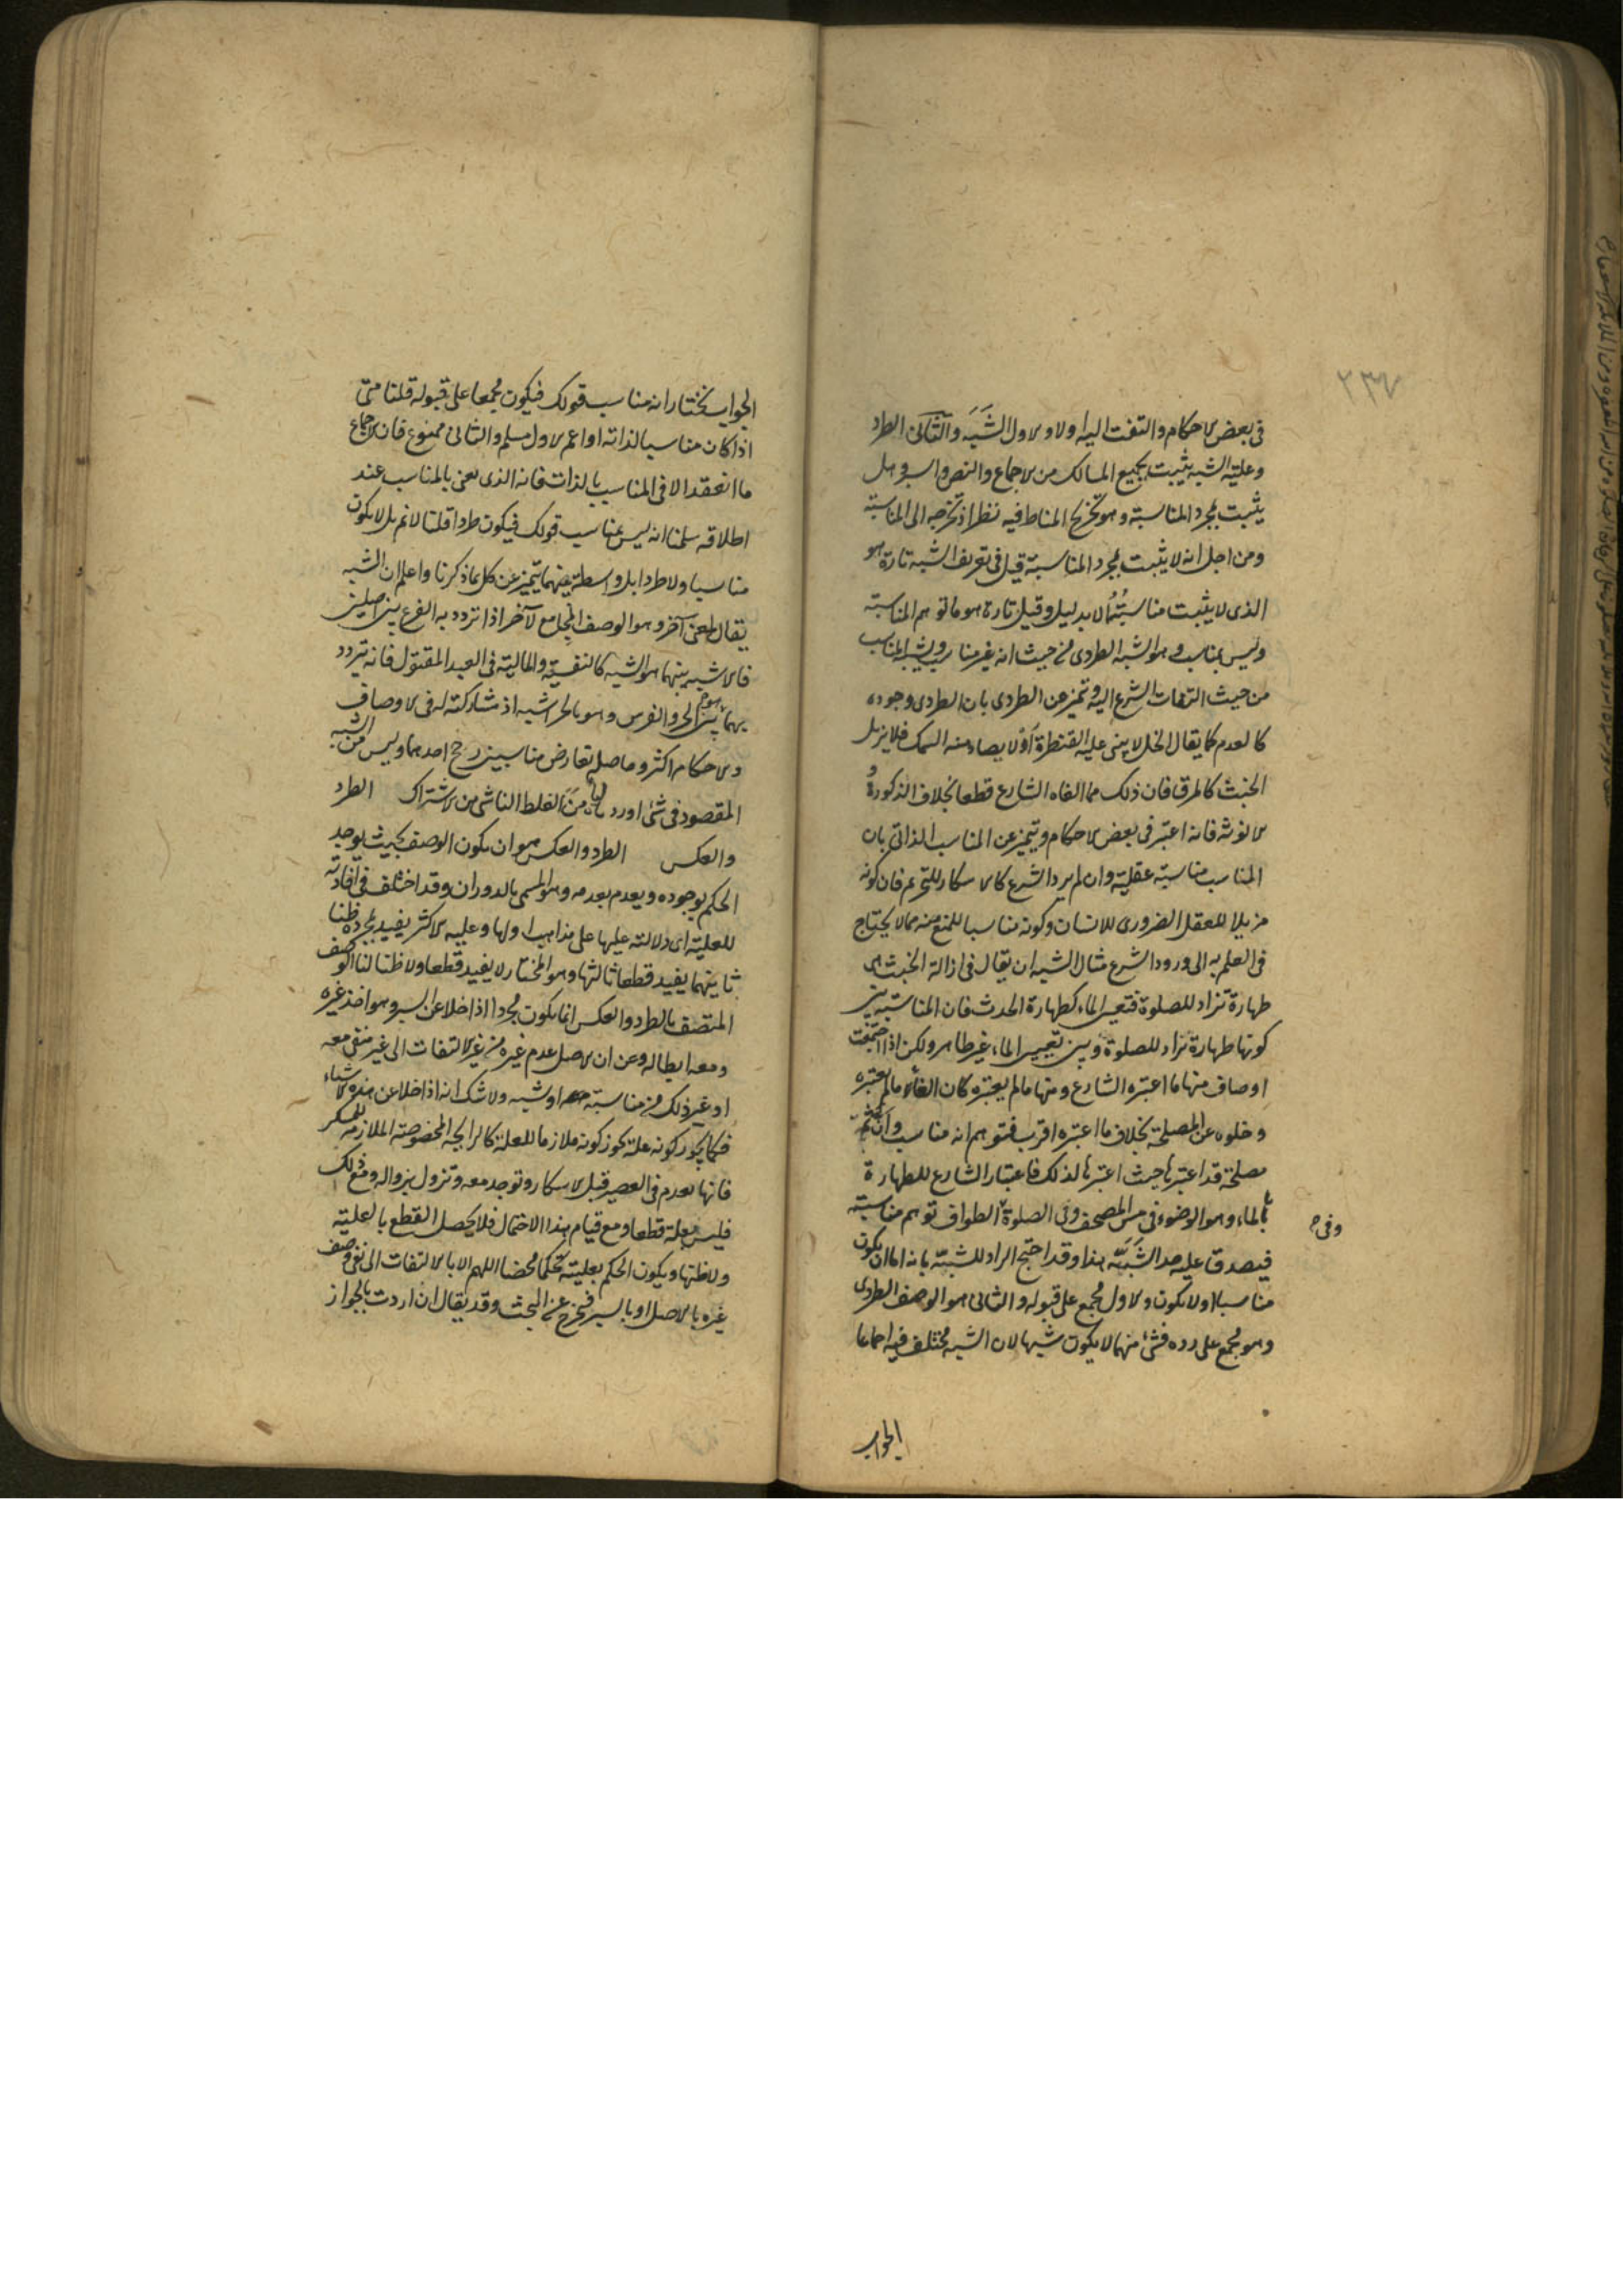 ٢٣٧
في بعض الاحكام والتفت اليه اولا والاول الشَبَه والثانى الطرد
وعلية الشبه يثبت بجميع المسالك من الاجماع والنص والسبر وهل
يثبت بمجرد المناسبة وهو تخريج المناط فيه نظر اذ تخرجه الى المناسبة
ومن اجل انه لا يثبت بمجرد المناسبة قيل في تعريف الشبه تارة هو
الذى لا يثبت مناسبتُهُ الا بدليل وقيل تارة هو ما توهم المناسبة
وليس بمناسب وهو الشبه الطردى من حيث انه غير مناسب ويشبه المناسب
من حيث التفات الشرع اليه وتميز عن الطردى بان الطردى وجوده
كالعدم كما يقال الخل لا يبنى عليه القنطرة اوْ لا يصاد منه السمك فلا يزيل
الخبث كالمرق فان ذلك مما الغاه الشارع قطعا بخلاف الذكورة و
الانوثة فانه اعتبر في بعض الاحكام ويتميز عن المناسب الذاتى بان
المناسب مناسبته عقلية وان لم يرد الشرع كالاسكار للتحريم فان كونه
مزيلا للعقل الضرورى للانسان وكونه مناسبا للمنع منه مما لا يحتاج
في العلم به الى ورود الشرع مثال الشبه ان يقال في ازالة الخبث هى
طهارة تراد للصلوة فتعين الماء كطهارة الحدث فان المناسبة بين
كونها طهارة تراد للصلوة وبين تعيين الماء غير ظاهر ولكن اذا اجتمعت
اوصاف منها ما اعتبره الشارع ومنها ما لم يعتبره كان الغاء ما لم يعتبره
وخلوه عن المصلحة بخلاف ما اعتبره اقرب فتوهم انه مناسب وان ثمه
مصلحة قد اعتبرها حيث اعتبرها لذلك فاعتبار الشارع للطهارة
بالماء وهو الوضوء في مس المصحف وفى الصلوة الطواف توهم مناسبته
وفى ح
فيصدق عليه حد الشَبَه هذا وقد احتج الراد للشبه بانه اما ان يكون
مناسبا او لا يكون والاول مجمع على قبوله والثانى هو الوصف الطردى
وهو مجمع على رده فشئ منهما لا يكون شبها لان الشبه مختلف فيه اجماعا
الجواب
الجواب نختار انه مناسب قولك فيكون مجمعا على قبوله قلنا متى
اذا كان مناسبا لذاته او اعم الاول مسلم والثانى ممنوع فان الاجماع
ما انعقد الا فى المناسب بالذات فانه الذى يعنى بالمناسب عند
اطلاقه سلمنا انه ليس بمناسب قولك فيكون طردا قلنا لانم بل لا يكون
مناسبا ولا طردا بل واسطة بينهما يتميز عن كل بما ذكرنا واعلم ان الشبه
يقال لمعنى آخر وهو الوصف الجامع لآخر اذا تردد به الفرع بين اصلين
فالاشبه بينهما هو الشبه كالنفسية والمالية فى العبد المقتول فانه تردد
بهما بين الحر والفرس وهو بالحر اشبه اذ مشاركته له فى الاوصاف
والاحكام اكثر وحاصله تعارض مناسبين رجح احدهما وليس من الشبه
المقصود فى شئ اورد من الغلط الناشى من الاشتراك الطرد
والعكس الطرد والعكس هو ان يكون الوصف بحيث يوجد
الحكم بوجوده ويعدم بعدمه وهو المسمى بالدوران وقد اختلف فى افادته
للعلية اى دلالته عليها على مذاهب اولها وعليه الاكثر يفيد بمجرده ظنا
ثانيهما يفيد قطعا ثالثها وهو المختار لا يفيد قطعا ولا ظنا لنا الوصف
المتصف بالطرد والعكس انما يكون مجردا اذا خلا عن السبر وهو اخذ غيره
ومعه ابطاله وعن ان الاصل عدم غيره من غير الالتفات الى غير منفى معه
او غير ذلك من مناسبة او شبه ولا شك انه اذا خلا عن هذه الاشياء
فكما يجوز كونه علة يجوز كونه ملازما للعلة كالرايحة المخصوصة الملازمة للمسكر
فانها تعدم فى العصير قبل الاسكار وتوجد معه وتزول بزواله ومع ذلك
فليس بعلة قطعا ومع قيام هذا الاحتمال فلا يحصل القطع بالعلية
ولا ظنها ويكون الحكم بعليته تحكما محضا اللهم الا بالالتفات الى نفى وصف
غيره بالاصل او بالسبر فيخرج عن المبحث وقد يقال ان اردت بالجواز